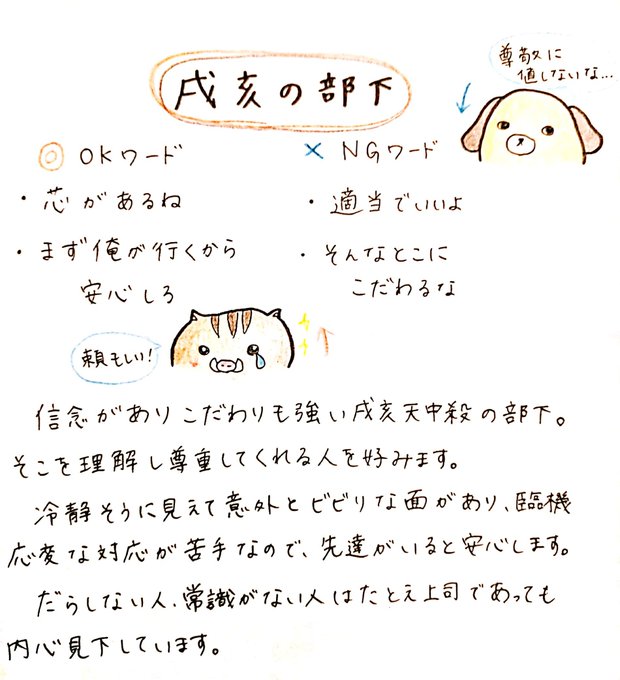 戌亥の部下
尊敬に
値しないな…
◎ OKワード
・芯があるね
・まず俺が行くから
安心しろ
× NGワード
・適当でいいよ
・そんなとこに
こだわるな
頼もしい!
信念がありこだわりも強い戌亥天中殺の部下。
そこを理解し尊重してくれる人を好みます。
冷静そうに見えて意外とビビりな面があり、臨機
応変な対応が苦手なので、先達がいると安心します。
だらしない人、常識がない人はたとえ上司であっても
内心見下しています。